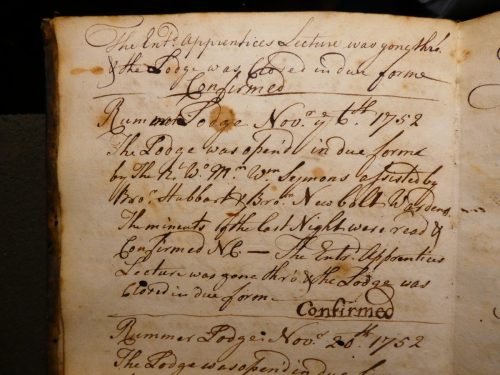 The Entd. Apprentices Lecture was gone thro.
& the Lodge was Closed in due forme
Confirmed
Rummer Lodge Novr. ye 6th. 1752
The Lodge was open'd in due forme
by The Rt. Wo. Mr. Wm. Symons assisted by
Bror. Stubbart & Bror. Newbolt Wardens
The minents of the last Night were read &
Confirmed NC — The Entr. Apprentices
Lecture was gone thro' & the Lodge was
Closed in due forme
Confirmed
Rummer Lodge: Novr. 20th. 1752
The Lodge was open'd in due